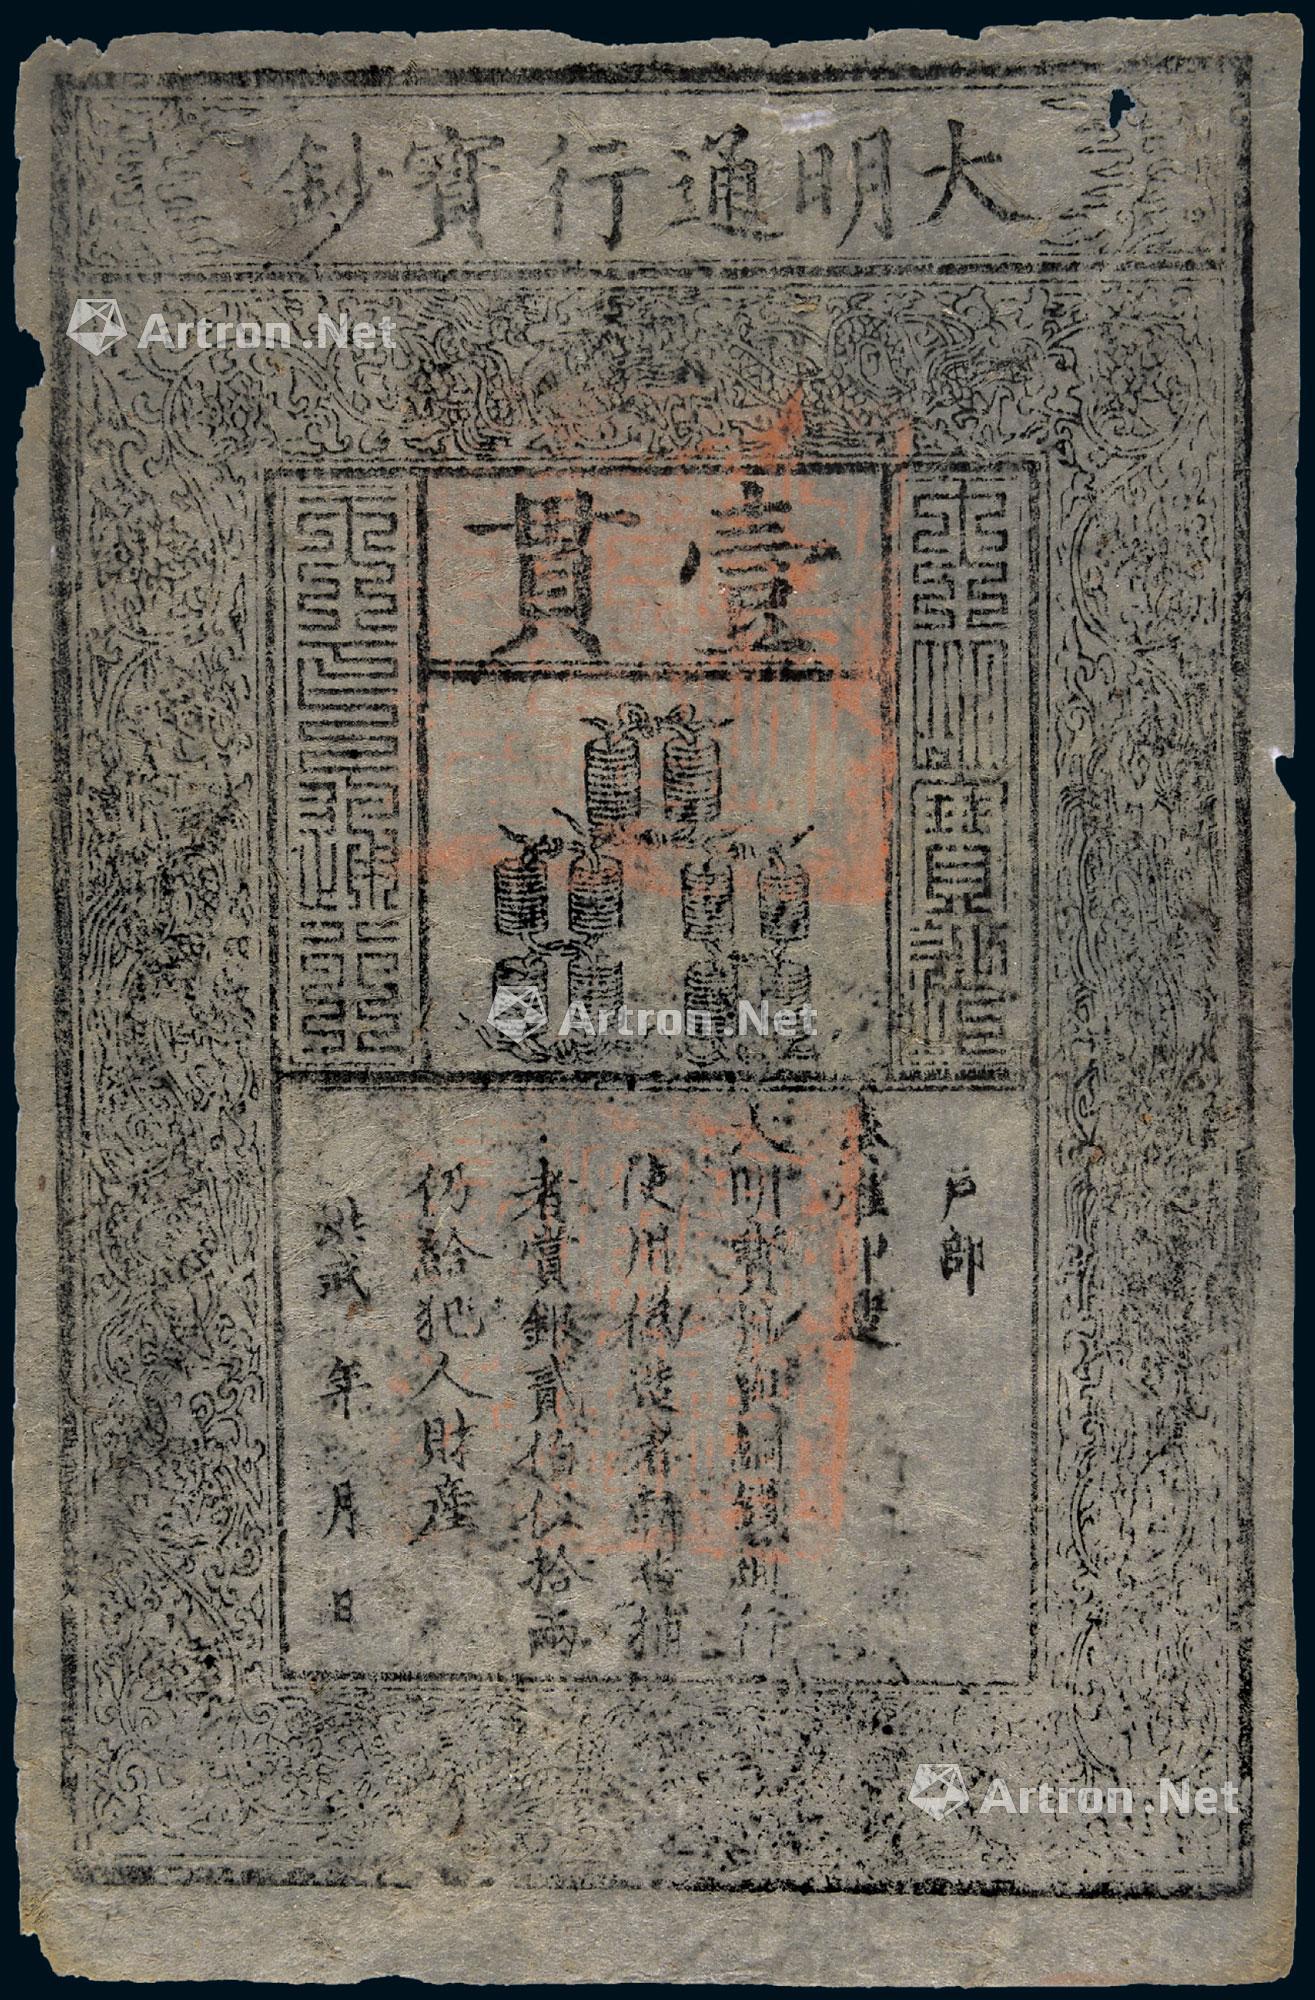 大明通行寶鈔
壹貫
大明寶鈔
天下通行
戶部
奏准印造
大明寶鈔與銅錢通行
使用偽造者斬告捕
者賞銀貳伯伍拾兩
仍給犯人財產
洪武 年 月 日
Artron.Net
Artron.Net
Artron.Net